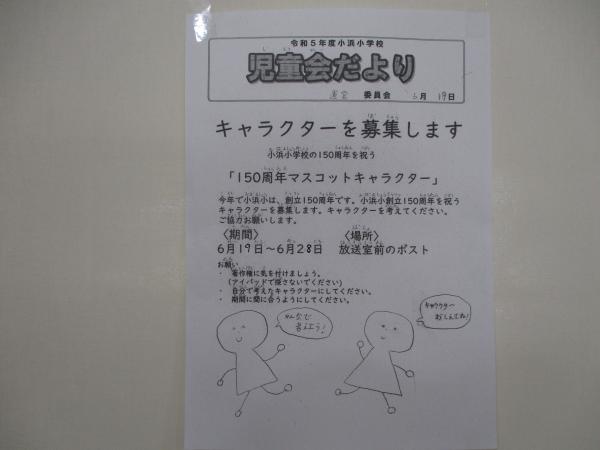 令和5年度小浜小学校
児童会だより
運営 委員会 6月 19日
キャラクターを募集します
小浜小学校の150周年を祝う
「150周年マスコットキャラクター」
今年で小浜小は、創立150周年です。小浜小創立150周年を祝う
キャラクターを募集します。キャラクターを考えてください。
ご協力お願いします。
〈期間〉 〈場所〉
6月19日〜6月28日 放送室前のポスト
お願い
・ 著作権に気を付けましょう。
(アイパッドで探さないでください)
・ 自分で考えたキャラクターにしてください。
・ 期間に間に合うようにしてください。
みんなで
考えよう!
キャラクター
おしえてね!